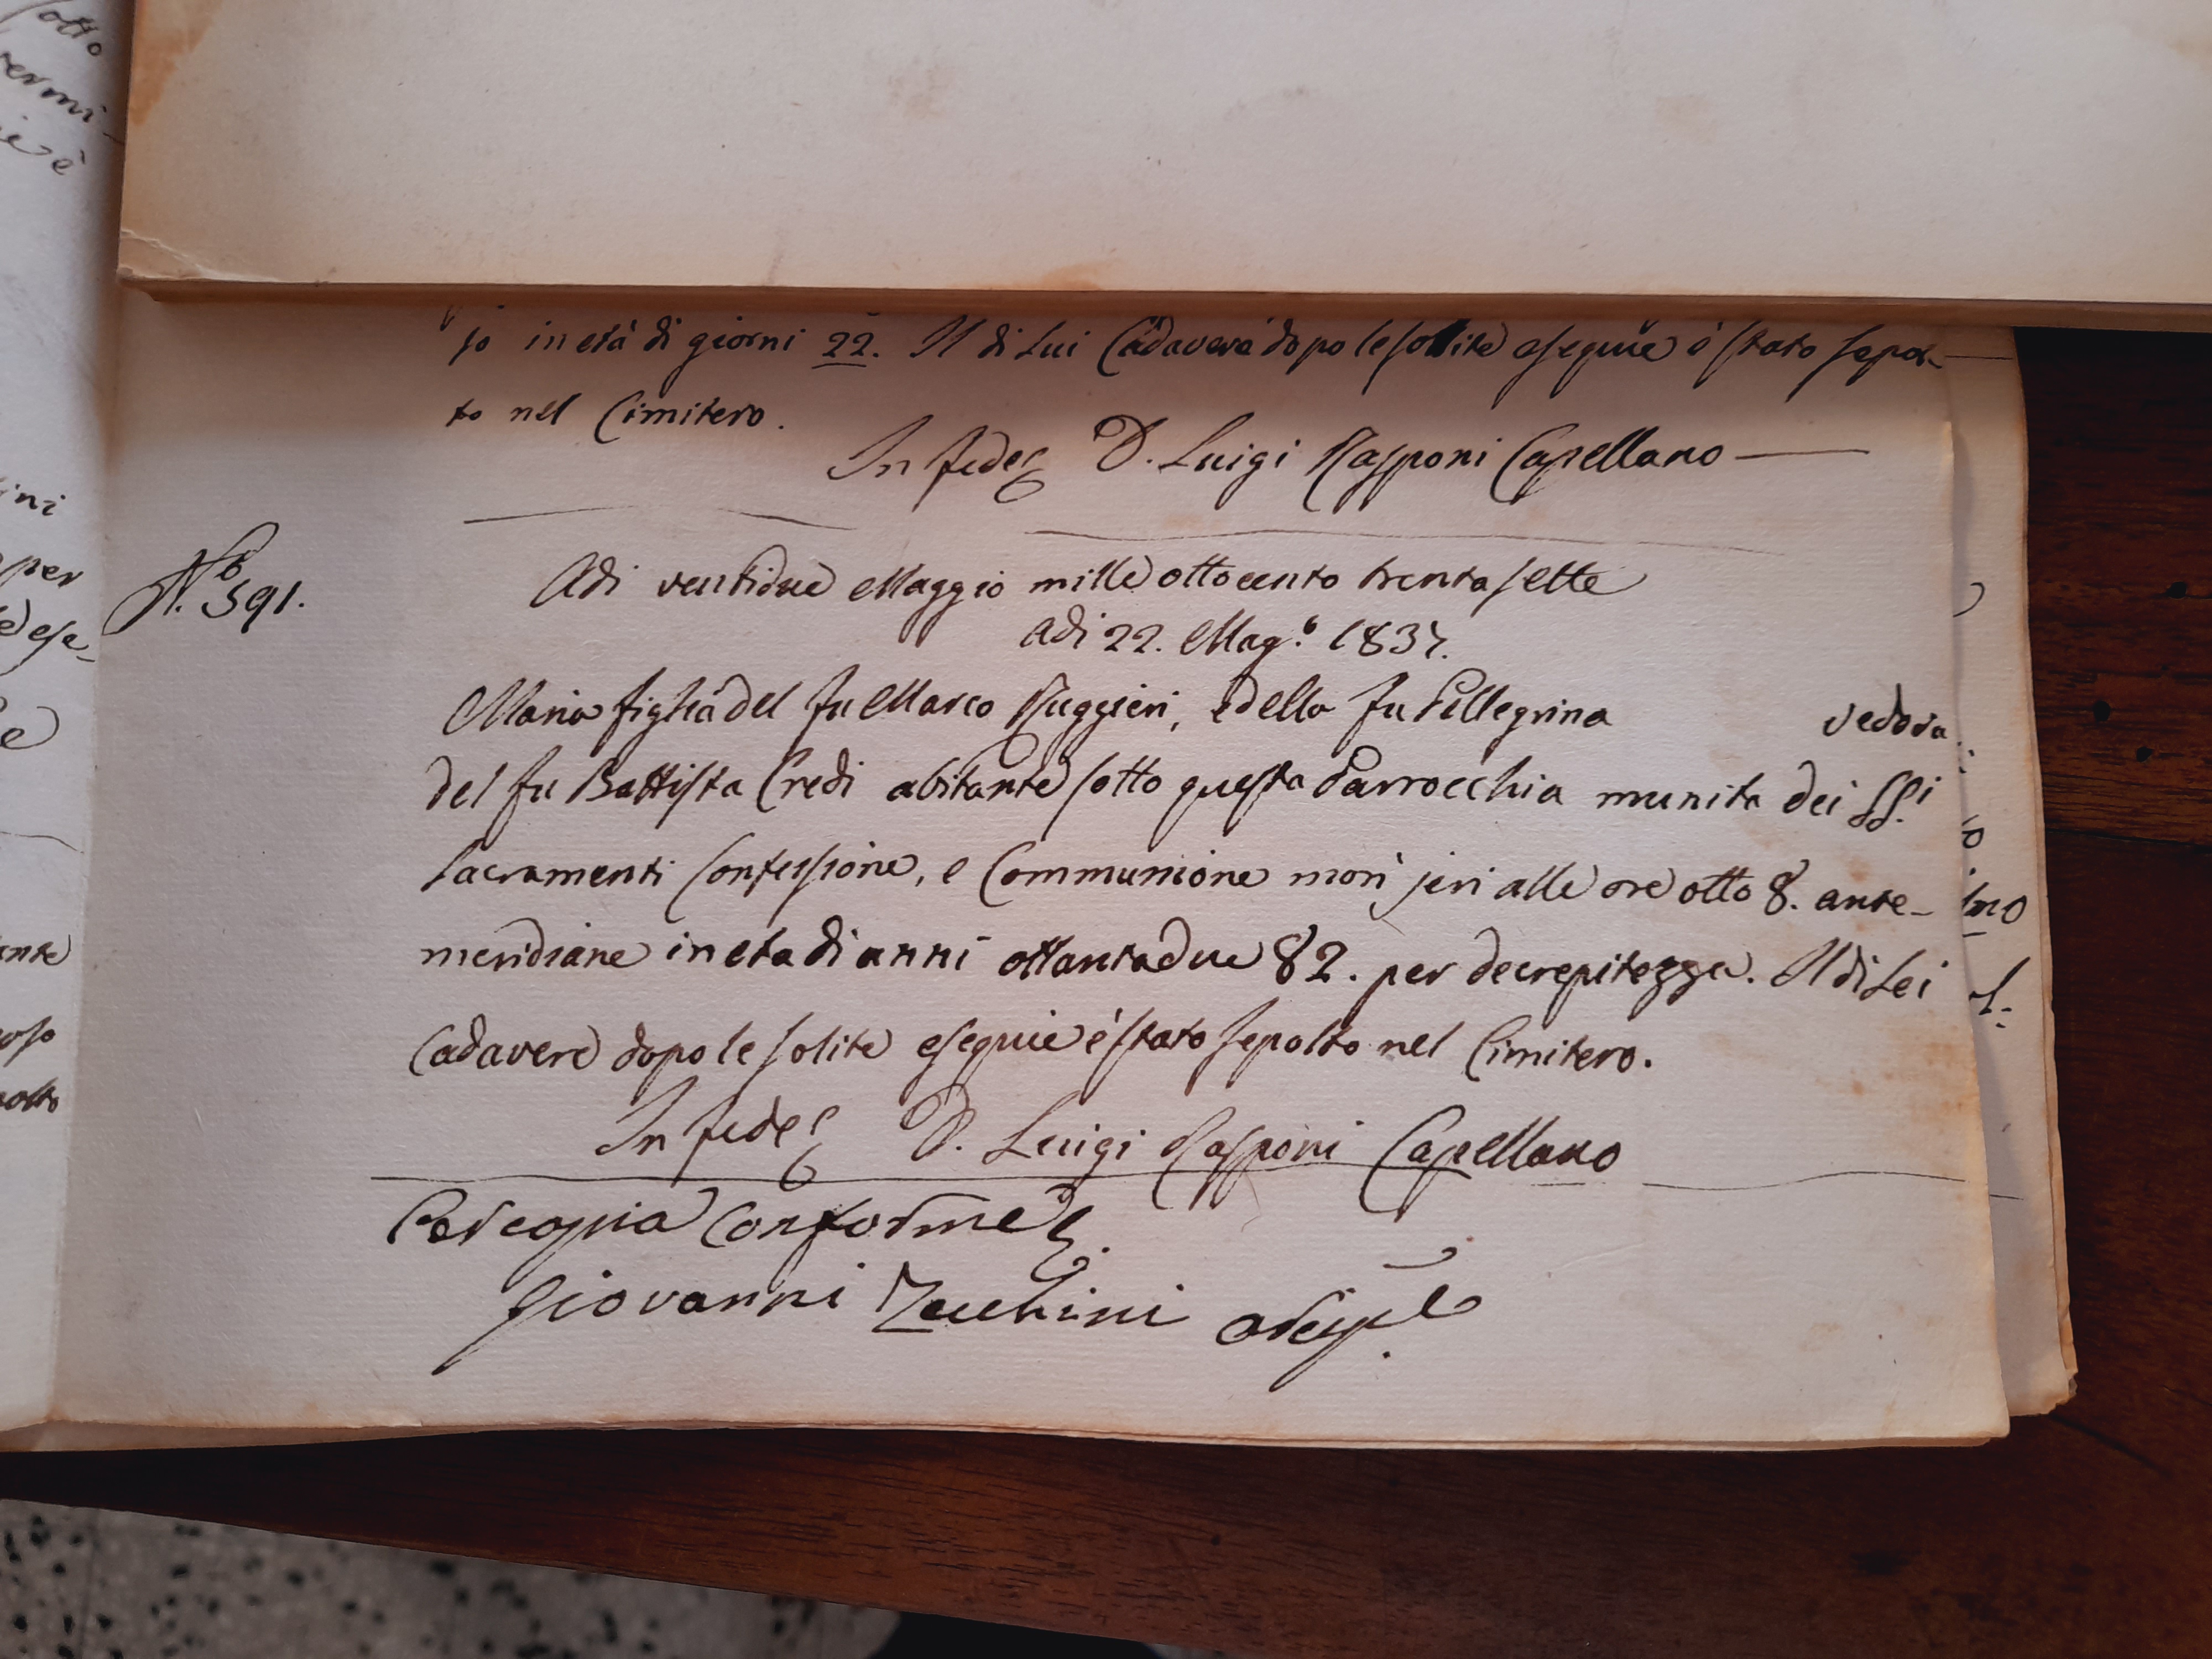 so in età di giorni 22. Il di Lui Cadavere dopo le solite esequie è stato sepol-
to nel Cimitero.
In fede D. Luigi Rasponi Capellano
N.º 391.
Adi ventidue Maggio mille ottocento trenta sette
Adi 22. Mag.º 1837.
Maria figlia del fu Marco Ruggieri, e della fu Pellegrina vedova
del fu Battista Credi abitante sotto questa Parrocchia munita dei SS.i
Sacramenti Confessione, e Communione morì jeri alle ore otto 8. ante-
meridiane in eta di anni ottantadue 82. per decrepitezza. Il di Lei
Cadavere dopo le solite esequie è stato sepolto nel Cimitero.
In fede D. Luigi Rasponi Capellano
Per copia Conforme
Giovanni Zecchini